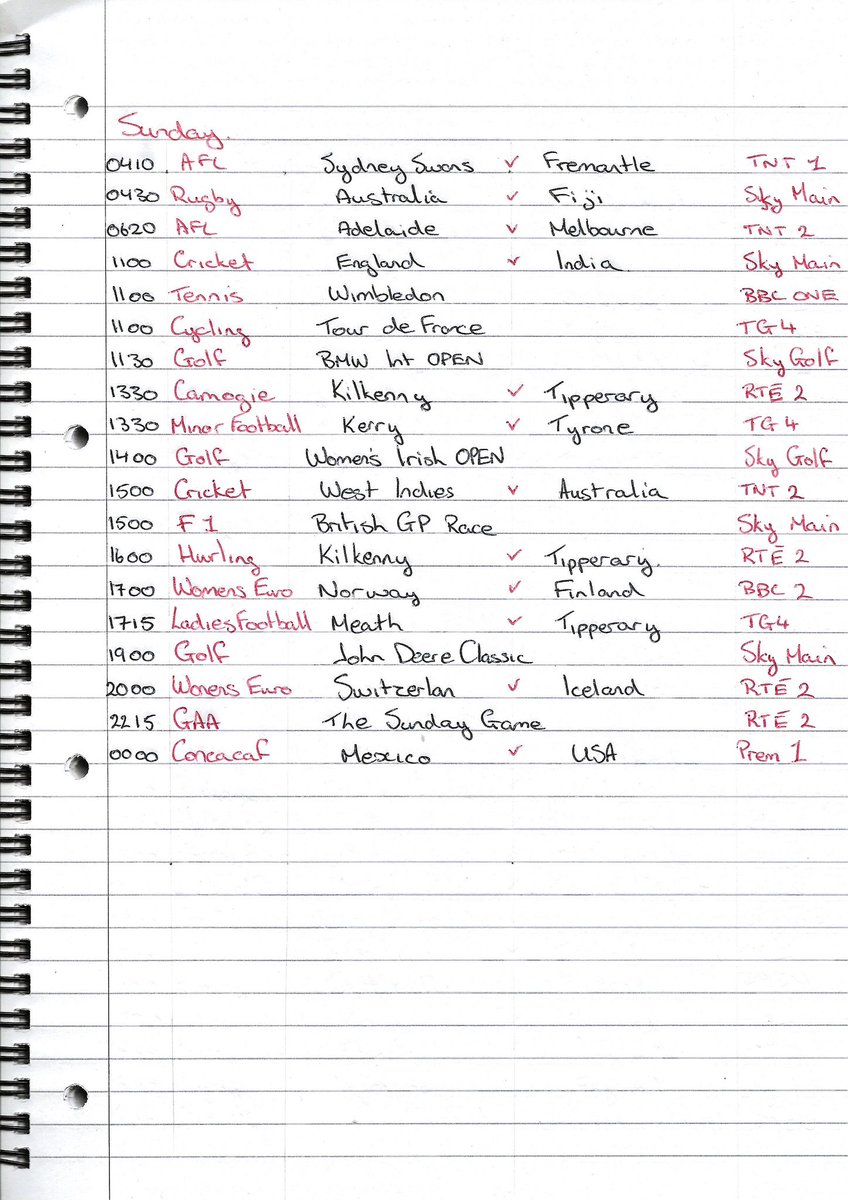 Sunday.
0410 AFL Sydney Swans v Fremantle TNT 1
0430 Rugby Australia v Fiji Sky Main
0620 AFL Adelaide v Melbourne TNT 2
1100 Cricket England v India Sky Main
1100 Tennis Wimbledon BBC ONE
1100 Cycling Tour de France TG4
1130 Golf BMW Int OPEN Sky Golf
1330 Camogie Kilkenny v Tipperary RTÉ 2
1330 Minor Football Kerry v Tyrone TG4
1400 Golf Women's Irish OPEN Sky Golf
1500 Cricket West Indies v Australia TNT 2
1500 F1 British GP Race Sky Main
1600 Hurling Kilkenny v Tipperary. RTÉ 2
1700 Womens Euro Norway v Finland BBC 2
1715 Ladies Football Meath v Tipperary TG4
1900 Golf John Deere Classic Sky Main
2000 Womens Euro Switzerlan v Iceland RTÉ 2
2215 GAA The Sunday Game RTÉ 2
0000 Concacaf Mexico v USA Prem 1